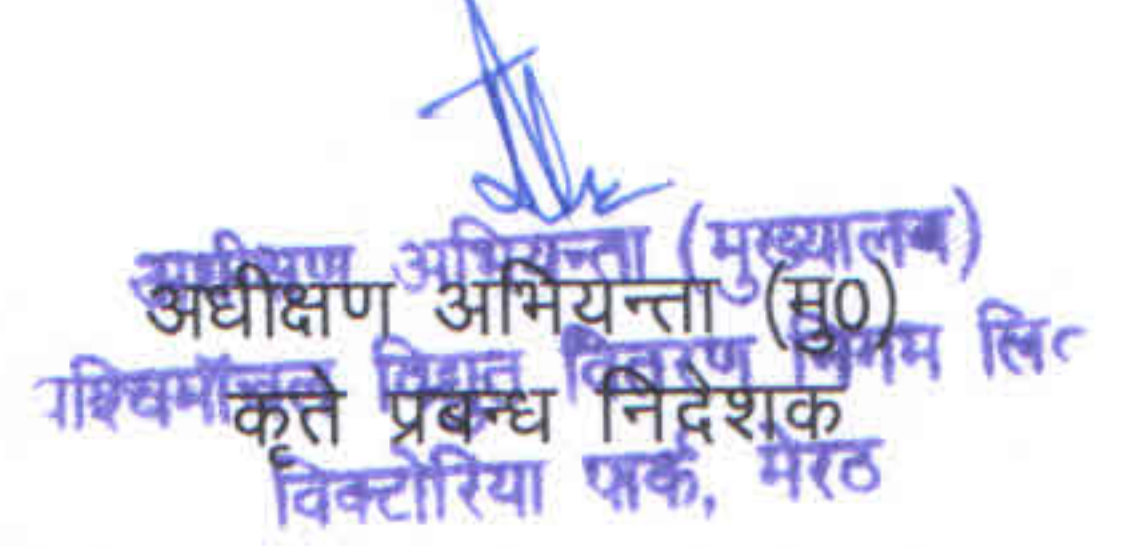 अधीक्षण अभियन्ता (मुख्यालय)
अधीक्षण अभियन्ता (मु0)
पश्चिमॉचल विद्युत वितरण निगम लि०
कृते प्रबन्ध निदेशक
विक्टोरिया पार्क, मेरठ